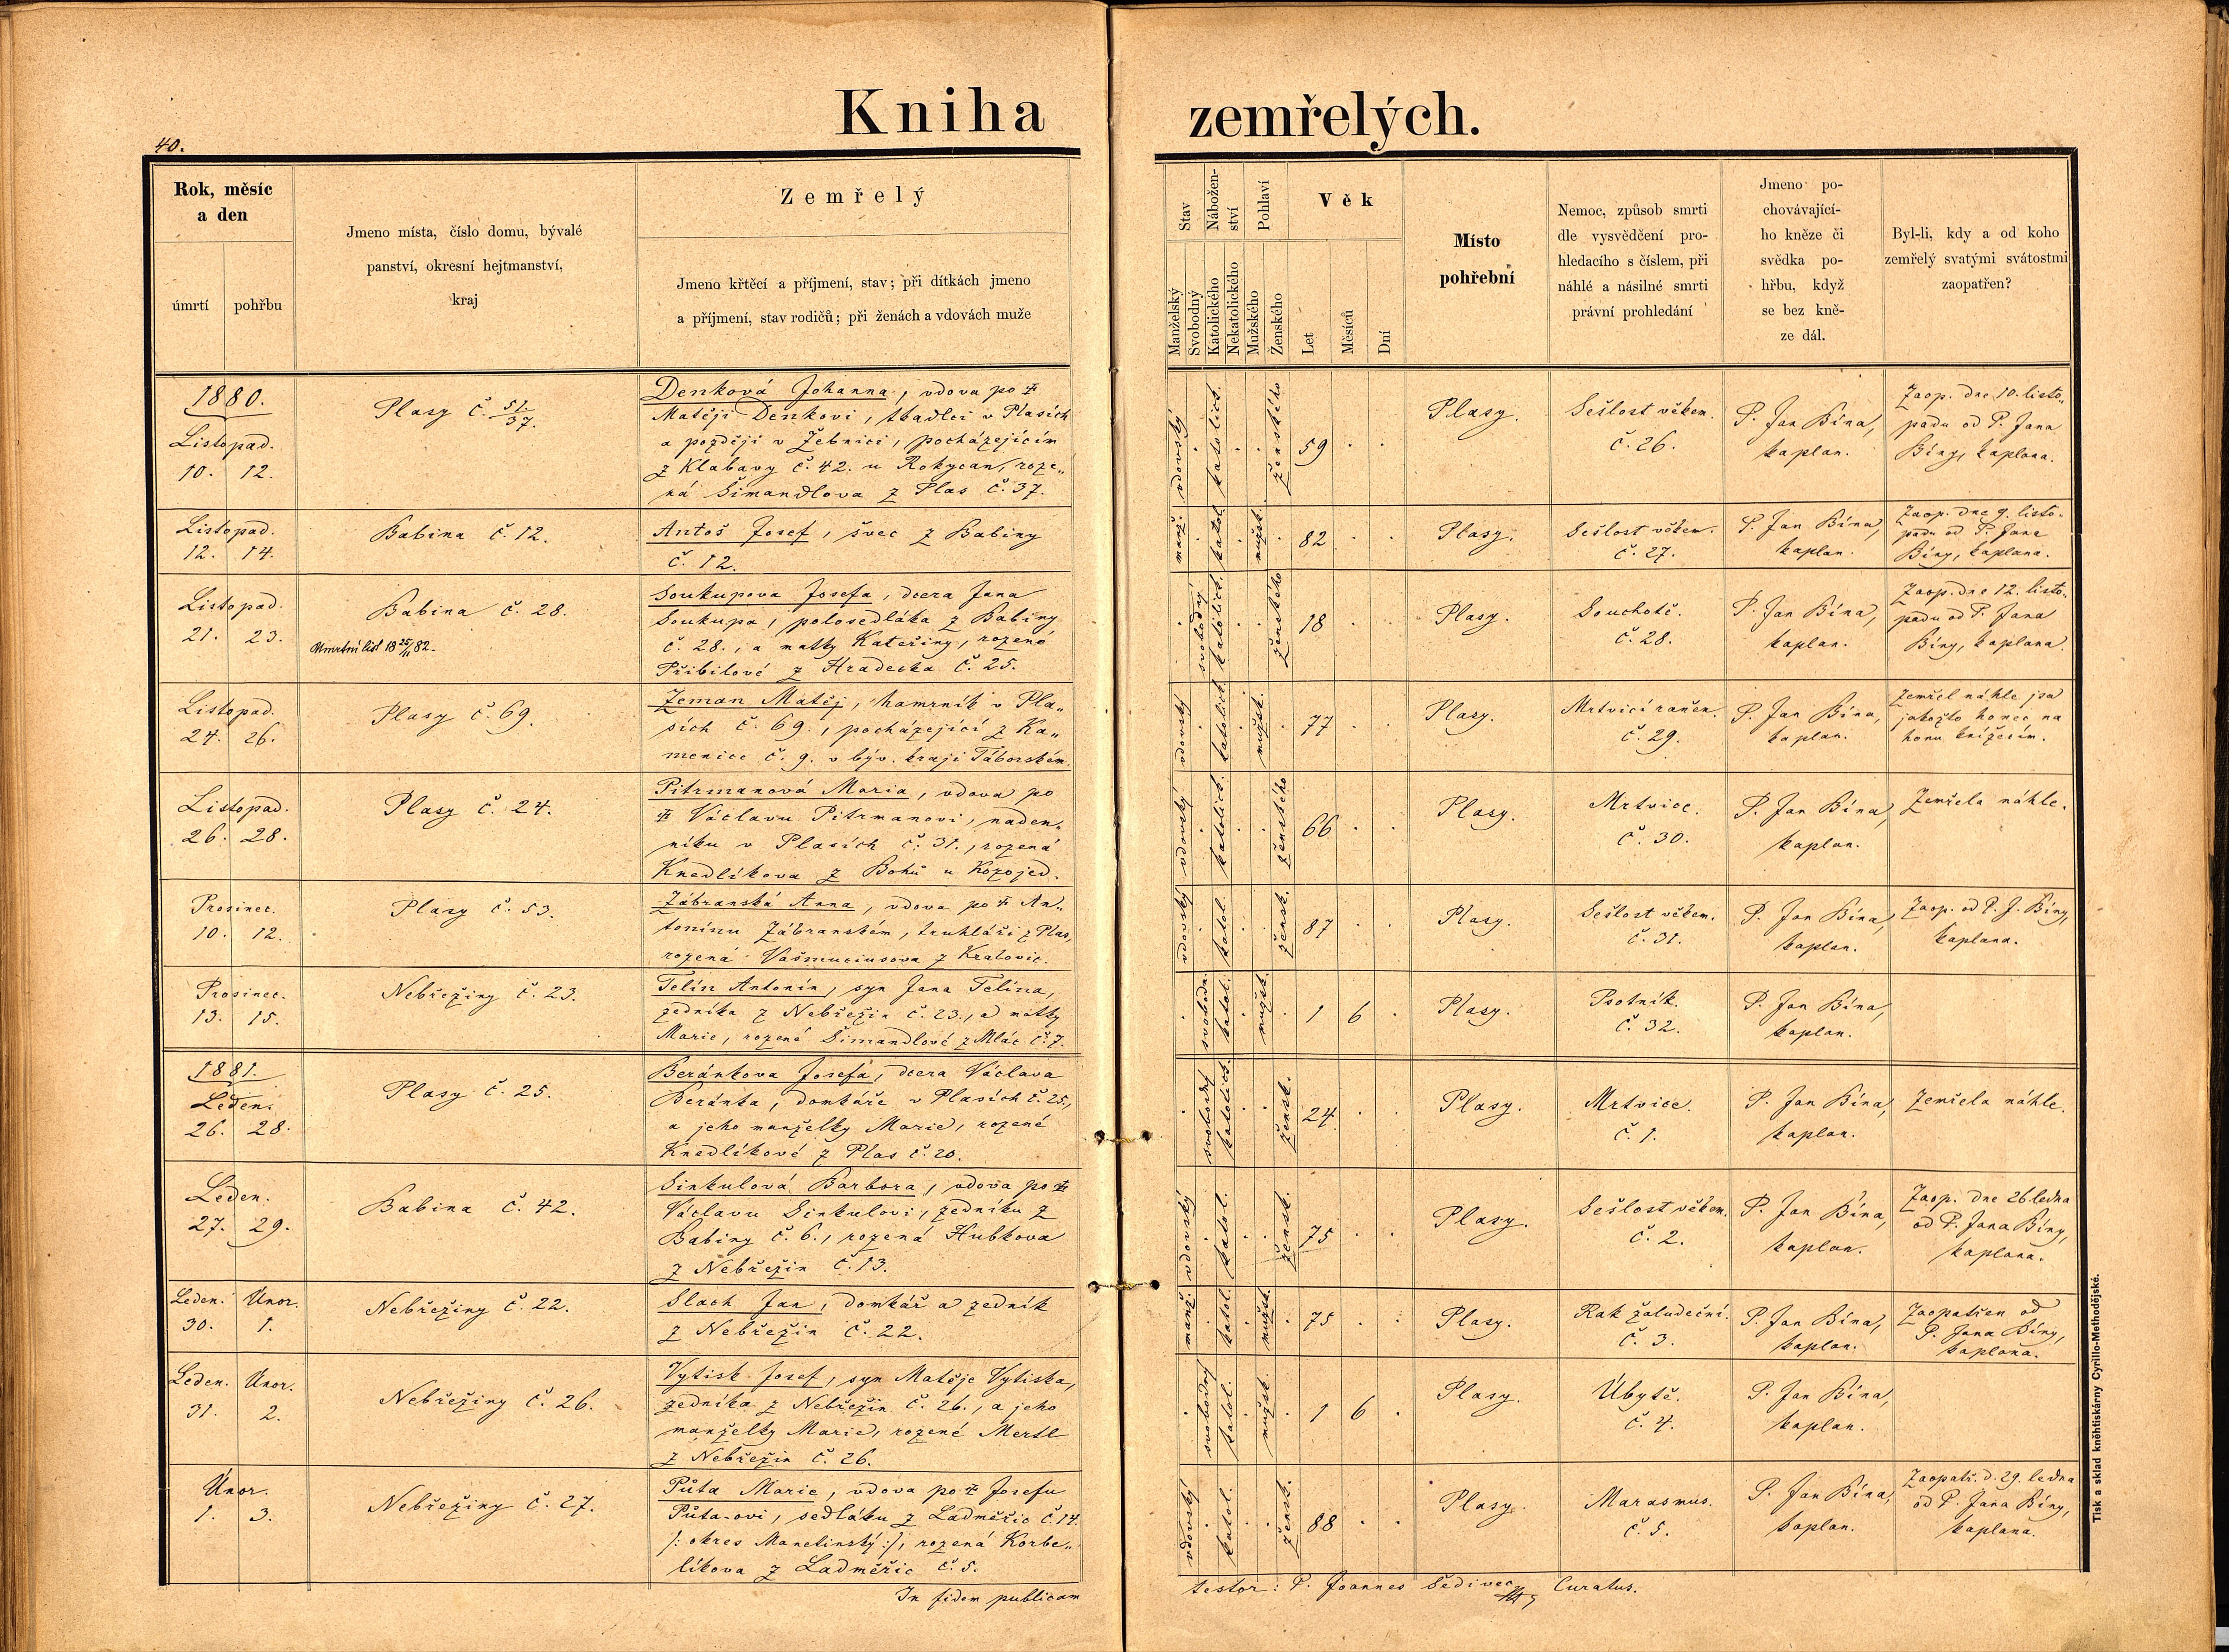 Kniha zemřelých.
40.
Rok, měsíc
a den
úmrtí
pohřbu
Jmeno místa, číslo domu, bývalé
panství, okresní hejtmanství,
kraj
Zemřelý
Jmeno křtěcí a příjmení, stav; při dítkách jmeno
a příjmení, stav rodičů; při ženách a vdovách muže
Stav
Manželský
Svobodný
Nábožen-
ství
Katolického
Nekatolického
Pohlaví
Mužského
Ženského
Věk
Let
Měsíců
Dní
Místo
pohřební
Nemoc, způsob smrti
dle vysvědčení pro-
hledacího s číslem, při
náhlé a násilné smrti
právní prohledání
Jmeno po-
chovávající-
ho kněze či
svědka po-
hřbu, když
se bez kně-
ze dál.
Byl-li, kdy a od koho
zemřelý svatými svátostmi
zaopatřen?
1880.
Listopad.
10. 12.
Plasy č. 51./37.
Denková Johanna, vdova po
Matěji Denkovi, tkadlci v Plasích
a později v Žebnici, pocházejícím
z Klabavy č. 42. u Rokycan, roze„
ná Šimandlova z Plas č. 37.
vdovský
katolick.
ženského
59
Plasy.
Sešlost věkem.
č. 26.
P. Jan Bína,
kaplan.
Zaop. dne 10. listo„
padu od P. Jana
Bíny, kaplana.
Listopad.
12. 14.
Babina č. 12.
Antoš Josef, švec z Babiny
č. 12.
manž.
katol.
mužsk.
82
Plasy.
Sešlost věkem.
č. 27.
P. Jan Bína,
kaplan.
Zaop. dne 9. listo.
padu od P. Jana
Bíny, kaplana.
Listopad.
21. 23.
Babina č. 28.
Umrtní list 18 25/11 82.
Soukupova Josefa, dcera Jana
Soukupa, polosedláka z Babiny
č. 28., a matky Kateřiny, rozené
Přibilové z Hradecka č. 25.
svobodný
katolick.
ženského
18
Plasy.
Souchotě.
č. 28.
P. Jan Bína,
kaplan.
Zaop. dne 12. listo.
padu od P. Jana
Bíny, kaplana.
Listopad.
24. 26.
Plasy č. 69.
Zeman Matěj, hamrník v Pla„
sích č. 69., pocházející z Ka„
menice č. 9. v býv. kraji Táborském.
vdovský
katolick.
mužsk.
77
Plasy.
Mrtvicí raněn.
č. 29.
P. Jan Bína,
kaplan.
Zemřel náhle jsa
jakožto honec na
honu knížecím.
Listopad.
26. 28.
Plasy č. 24.
Pitrmanová Maria, vdova po
Václavu Pitrmanovi, naden„
níku v Plasích č. 31., rozená
Knedlíkova z Bohů u Kozojed.
vdovský
katolick.
ženského
66
Plasy.
Mrtvice.
č. 30.
P. Jan Bína,
kaplan.
Zemřela náhle.
Prosinec.
10. 12.
Plasy č. 53.
Zábranská Anna, vdova po An„
tonínu Zábranském, truhláři z Plas,
rozená Vašmuciusova z Kralovic.
vdovský
katol.
žensk.
87
Plasy.
Sešlost věkem.
č. 31.
P. Jan Bína,
kaplan.
Zaop. od P. J. Bíny,
kaplana.
Prosinec.
13. 15.
Nebřeziny č. 23.
Telín Antonín, syn Jana Telína,
zedníka z Nebřezin č. 23., a matky
Marie, rozené Šimandlové z Mlác č. 7.
svobodn.
katol.
mužsk.
1 6
Plasy.
Psotník.
č. 32.
P. Jan Bína,
kaplan.
1881.
Leden.
26. 28.
Plasy č. 25.
Beránkova Josefa, dcera Václava
Beránka, domkáře v Plasích č. 25.,
a jeho manželky Marie, rozené
Knedlíkové z Plas č. 20.
svobodný
katolick.
žensk.
24
Plasy.
Mrtvice.
č. 1.
P. Jan Bína,
kaplan.
Zemřela náhle.
Leden.
27. 29.
Babina č. 42.
Sinkulová Barbora, vdova po
Václavu Sinkulovi, zedníku z
Babiny č. 6., rozená Hubkova
z Nebřezin č. 13.
vdovský
katol.
žensk.
75
Plasy.
Sešlost věkem.
č. 2.
P. Jan Bína,
kaplan.
Zaop. dne 26 ledna
od P. Jana Bíny,
kaplana.
Leden. Únor.
30. 1.
Nebřeziny č. 22.
Slach Jan, domkář a zedník
z Nebřezin č. 22.
manž.
katol.
mužsk.
75
Plasy.
Rak žaludeční.
č. 3.
P. Jan Bína,
kaplan.
Zaopatřen od
P. Jana Bíny,
kaplana.
Leden. Únor.
31. 2.
Nebřeziny č. 26.
Vytisk Josef, syn Matěje Vytiska,
zedníka z Nebřezin č. 26., a jeho
manželky Marie, rozené Mertl
z Nebřezin č. 26.
svobodný
katol.
mužsk.
1 6
Plasy.
Úbytě.
č. 4.
P. Jan Bína,
kaplan.
Únor.
1. 3.
Nebřeziny č. 27.
Půta Marie, vdova po Josefu
Půta-ovi, sedláku z Ladměřic č. 14.
/: okres Manetinský :/, rozená Korbe„
líkova z Ladměřic č. 5.
vdovský
katol.
žensk.
88
Plasy.
Marasmus.
č. 5.
P. Jan Bína,
kaplan.
Zaopatř. d. 29. ledna
od P. Jana Bíny,
kaplana.
In fidem publicam
testor: P. Joannes Šedivec, Curatus.
Tisk a sklad kněhtiskárny Cyrillo-Methodějské.